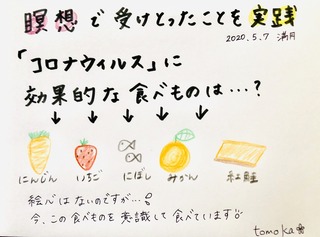 瞑想で受けとったことを実践
2020.5.7 満月
「コロナウィルス」に
効果的な食べものは…?
にんじん いちご にぼし みかん 紅鮭
絵心はないのですが…
今、この食べものを意識して食べています
tomoka